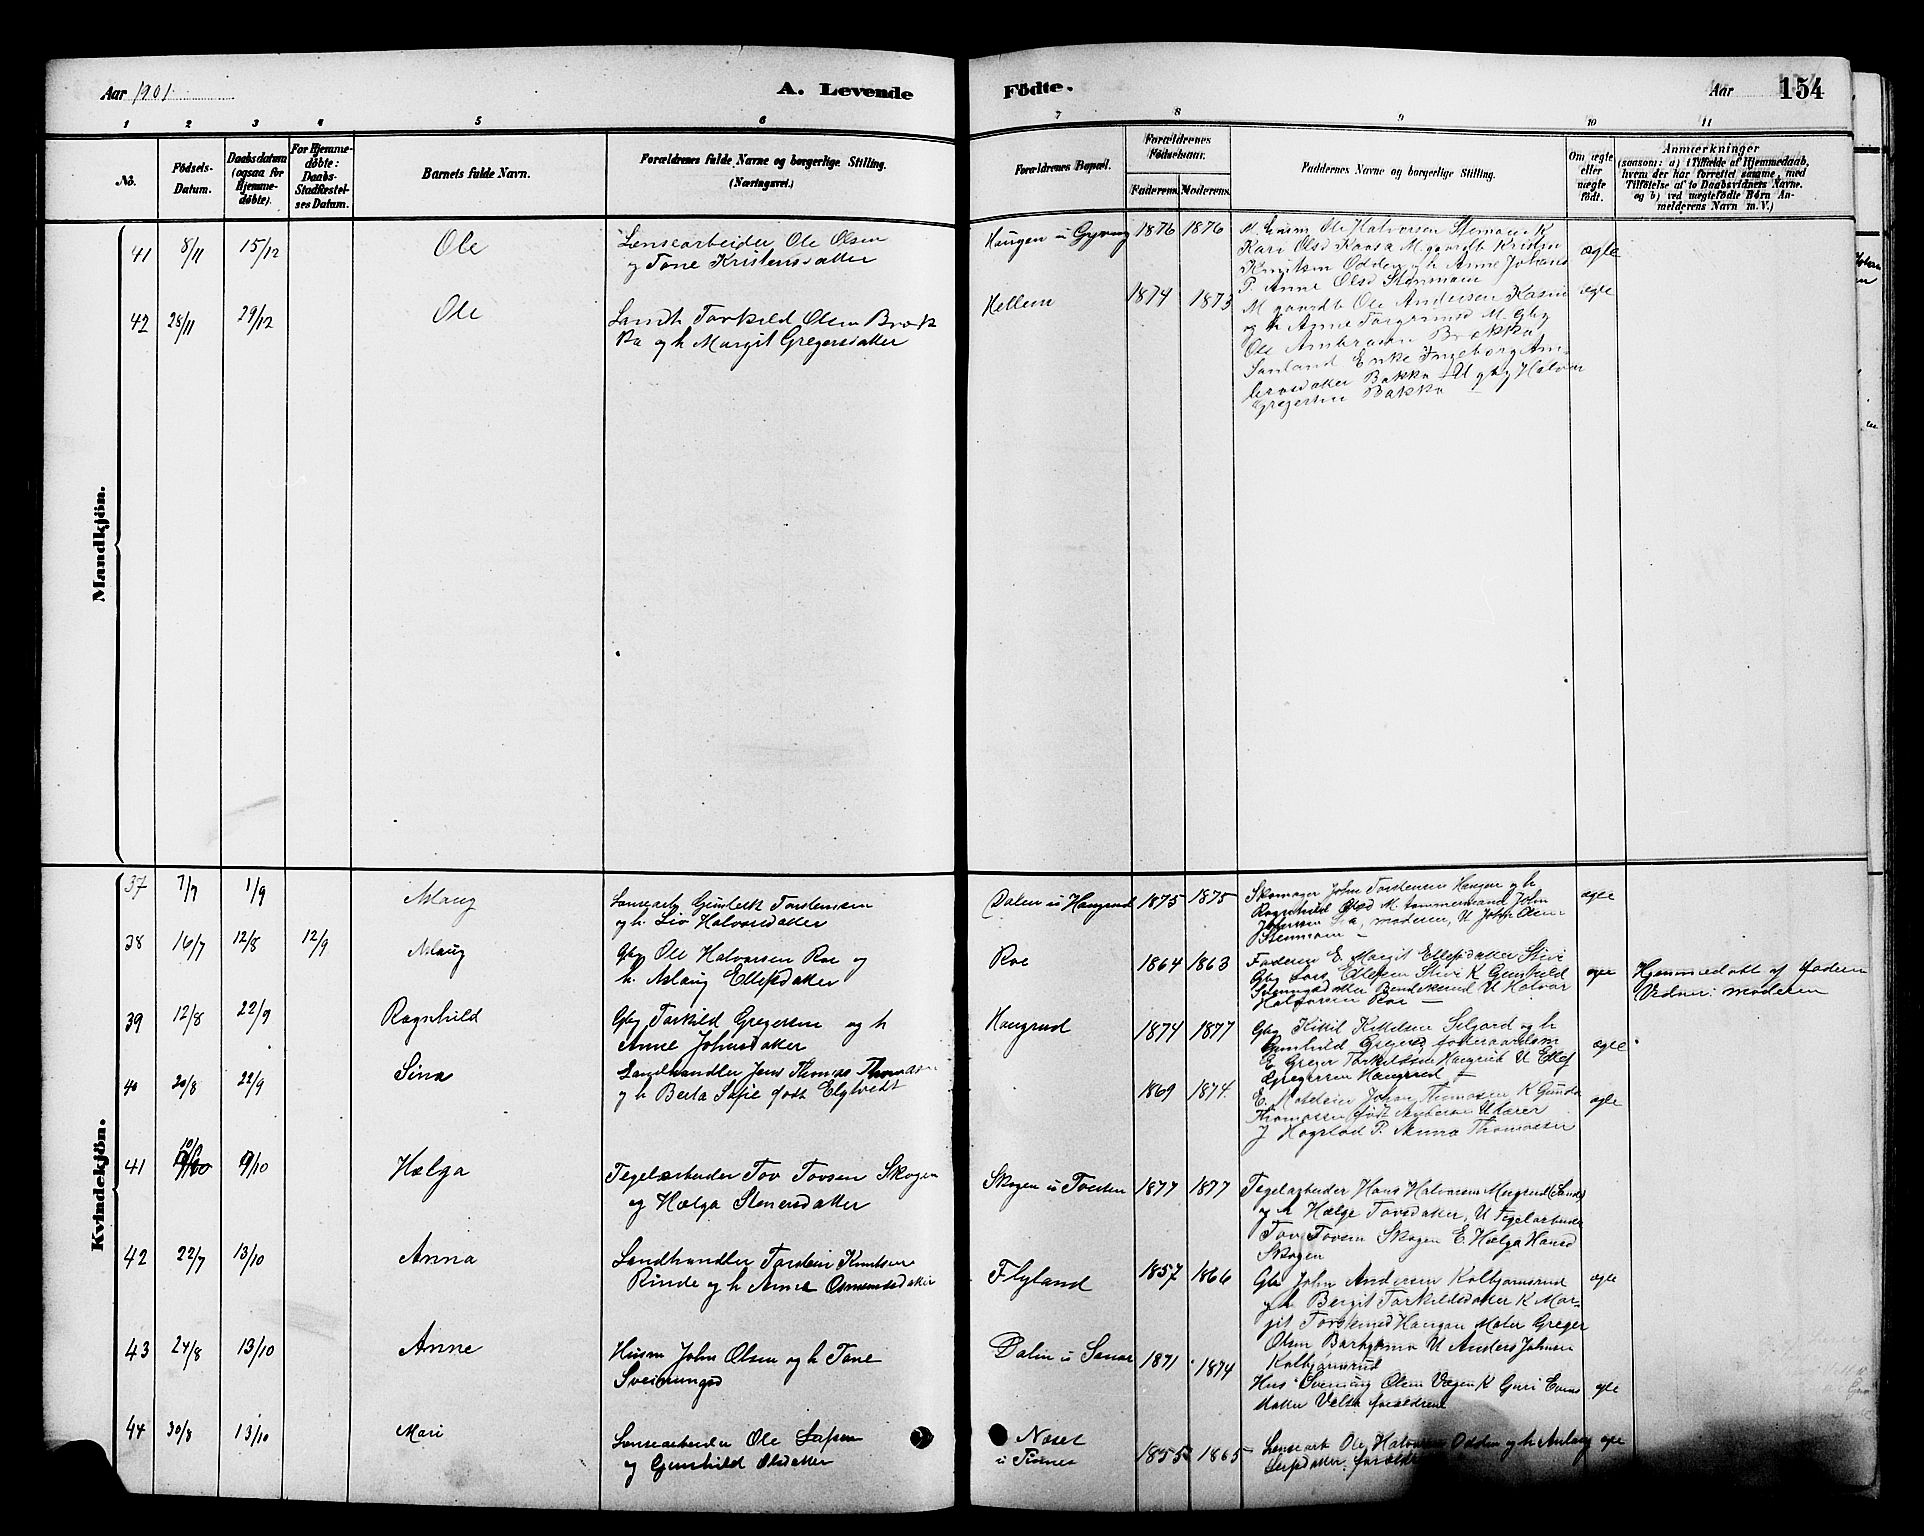 Aar 1901
A. Levende
Fødte.
Aar
154
1 2 3 4 5 6 7 8 9 10 11
No.
Fødsels-
Datum.
Daabsdatum
(ogsaa for
Hjemme-
døbte).
For Hjemme-
døbte:
Daabs-
Stadfæstel-
ses Datum.
Barnets fulde Navn.
Forældrenes fulde Navne og borgerlige Stilling.
(Næringsvei.)
Forældrenes Bopæl.
Forældrenes
Fødselsaar.
Faderens. Moderens.
Faddernes Navne og borgerlige Stilling.
Om ægte
eller
uægte
født.
Anmærkninger
(saasom: a) i Tilfælde af Hjemmedaab,
hvem der har forrettet samme, med
Tilføielse af to Daabsvidners Navne.
og b) ved uægtefødte Børn An-
melderens Navn m. V.)
Mandkjøn.
41 8/11 15/12 Ole
Lensearbeider Ole Olsen
og Tone Kristensdatter
Haugen u Gyvng 1876 1876
Ole Halvorsen Stenmoen K
Kari Olsd Kaasa M gaardb Kristen
Knutsen Odden og h Anne Johans
P. Anne Olsd Stenmoen
ægte
42 28/11 29/12 Ole
Landh Torkild Olsen Bræk
ka og h Margit Gregersdatter
Hellem 1874 1873
M gaardb Ole Andersen Kasin
og h Anne Torgrimsd M. Gby
Ole Ambrosen Brække
Sanland Enke Ingeborg Am-
brosdatter Bakka U gby Halvor
Gregersen Bakka
ægte
Kvindekjøn.
37 7/7 1/9 Aslaug
Lensearb Gunleik Torstensen
og h. Liv Halvorsdatter
Dalen u Haugrud 1875 1875
Skomager John Torstensen Haugen og h
Ragnhild Olsd M. tømmermand John
Johnsen S. a, moderen, U John Olsen
Stenmoen
ægte
38 16/7 12/8 12/9 Aslaug
Gby Ole Halvorsen Roe og
h. Aslaug Ellefsdatter
Roe 1864 1863
Faderen E. Margit Ellefsdatter Stivi
Gby Lars Ellefsen Stivi K Gunhild
Bendiksrud U Halvor
Halvorsen Roe
ægte
Hjemmedøbt af faderen
Vidner: moderen
39 12/8 22/9 Ragnhild
Gby Torkild Gregersen og h
Anne Johnsdatter
Haugrud 1874 1877
Gby Kittil Kittelsen Seljord og h
Gunhild Gregersd,
E. Greger Torkildsen Haugrud U Ellef
Gregersen Haugrud
ægte
40 20/8 22/9 Sina
Landhandler Jens Thomas Thomasen
og h Berta Sofie født Elgtvedt
1869 1874.
E. Johan Thomasen K Gunda
Thomasen født Andersen U Lærer
J Hogstad P. Anna Thomasen
ægte
41 10/9 9/10 Hælga
Tegelarbeider Tov Tovsen Skogen
og Hælga Stenersdatter
Skogen u Tveiten 1877 1877
Tegelarbeider Hans Halvorsen Mogrud (Sande)
og h Hælge Tovsdatter, U Tegelarbeider
Tov Tovsen Skogen E. Hælga Hansd
Skogen
42 22/7 13/10 Anna
Landhandler Torstein Knutsen
Rinde og h Anne Osmundsdatter
Flyland 1857 1866
Gbr John Andersen Kolbjørnsrud
og h Bergit Torkildsdatter K Mar-
git Torstensd Haugan Maler Greger
Olsen U Anders Johnsen
Kolbjørnsrud
ægte
43 24/8 13/10 Anne
Husm John Olsen og h Tone
Sveinungsd
Dalen u Sanar 1871 1874
Hus Sveinung Olsen Vægen K Guri Evens
datter Velta forældrene
ægte
44 30/8 13/10 Mari
Lensearbeider Ole Leifsen
og Gunhild Olsdatter
Næset
u Tinnes 1855 1865
Lensearb Ole Halvorsen Odden og h Aslaug
Leifsdatter,
ægte